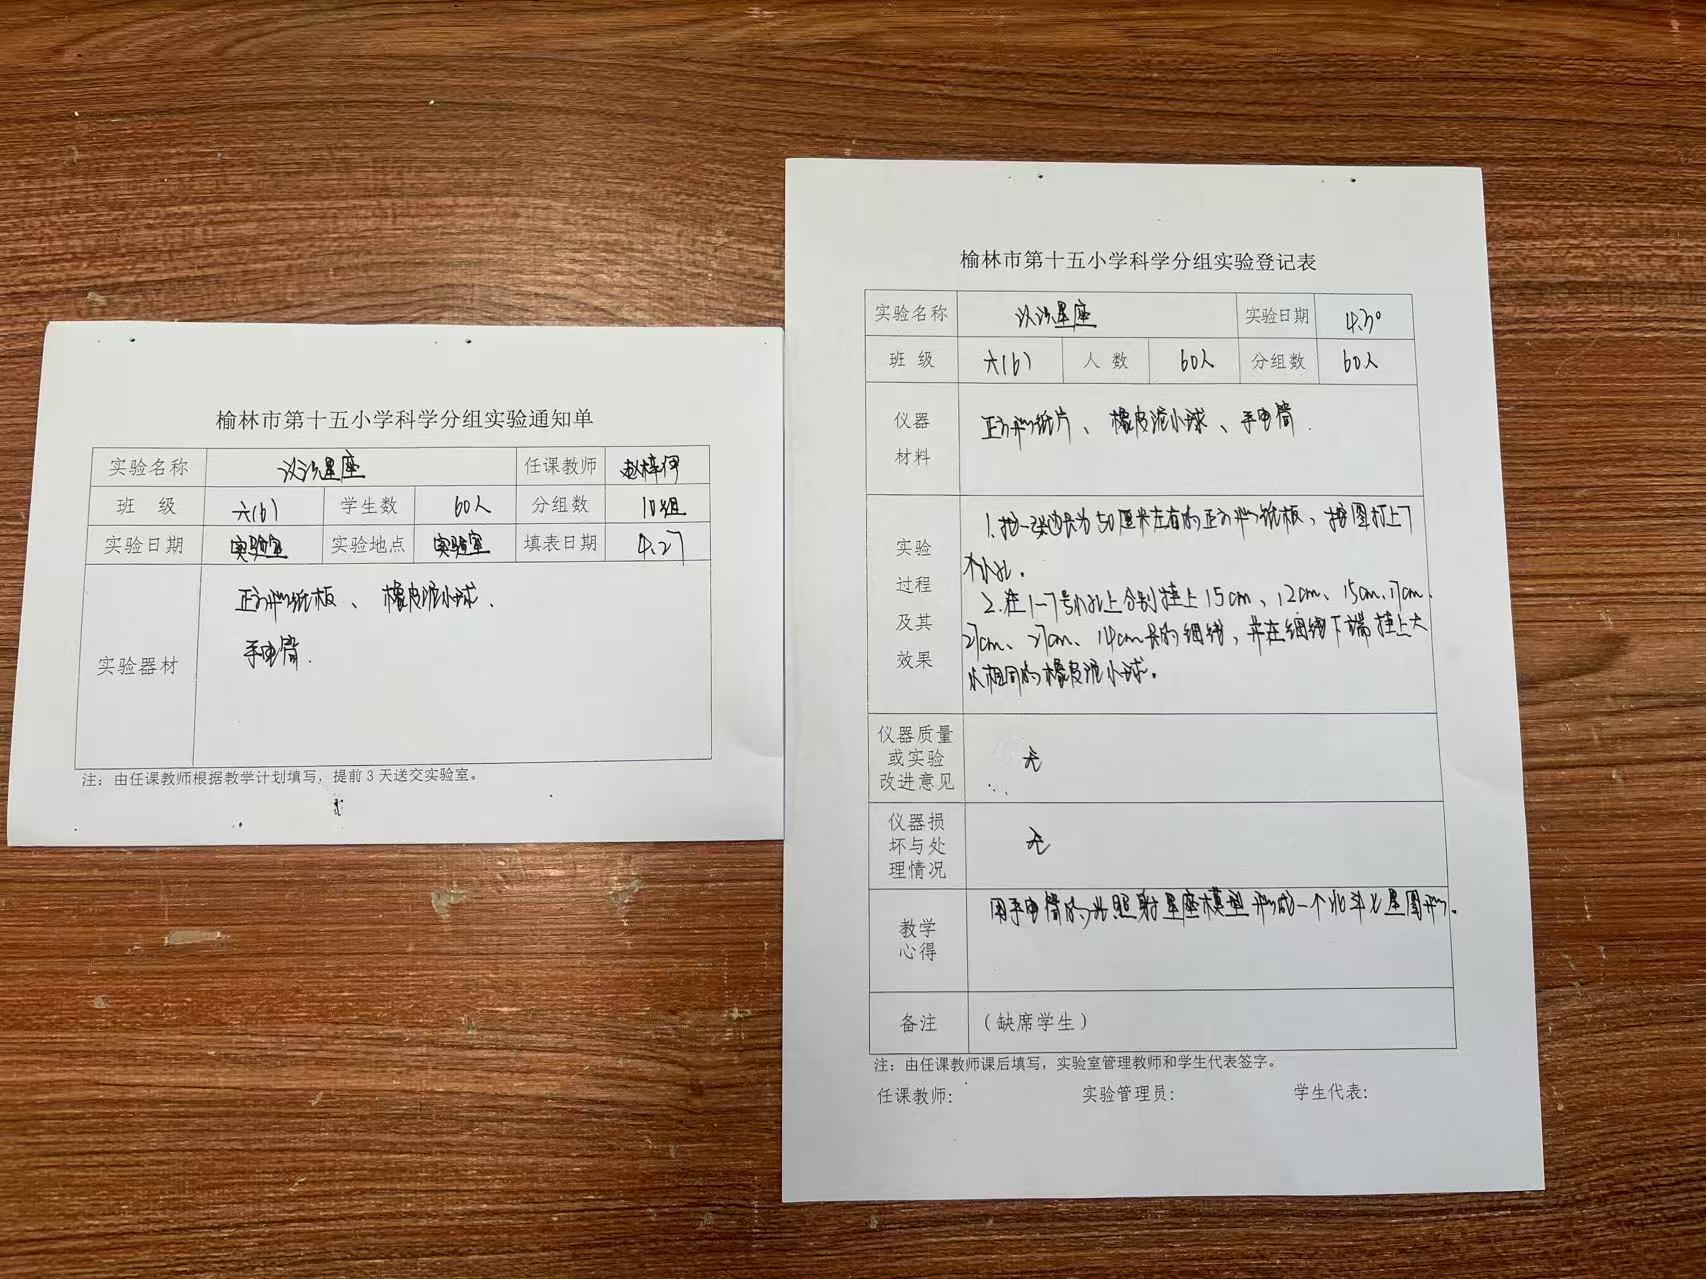 榆林市第十五小学科学分组实验通知单
实验名称 认识星座 任课教师 赵梓伊
班 级 六(6) 学生数 60人 分组数 10组
实验日期 实验室 实验地点 实验室 填表日期 4.27
实验器材
正方形纸板、橡皮泥小球、
手电筒.
注：由任课教师根据教学计划填写，提前3天送交实验室。
榆林市第十五小学科学分组实验登记表
实验名称 认识星座 实验日期 4.30
班 级 六(6) 人 数 60人 分组数 60人
仪器
材料
正方形纸片、橡皮泥小球、手电筒.
实验
过程
及其
效果
1.把一张边长为50厘米左右的正方形纸板，按图打上7
个小孔.
2.在1-7号小孔上分别挂上15cm、12cm、15cm、17cm、
27cm、27cm、14cm长的细线，并在细线下端挂上大
小相同的橡皮泥小球。
仪器质量
或实验
改进意见
无
仪器损
坏与处
理情况
无
教学
心得
用手电筒的光照射星座模型形成一个北斗七星图形.
备注 （缺席学生）
注：由任课教师课后填写，实验室管理教师和学生代表签字。
任课教师： 实验管理员： 学生代表：